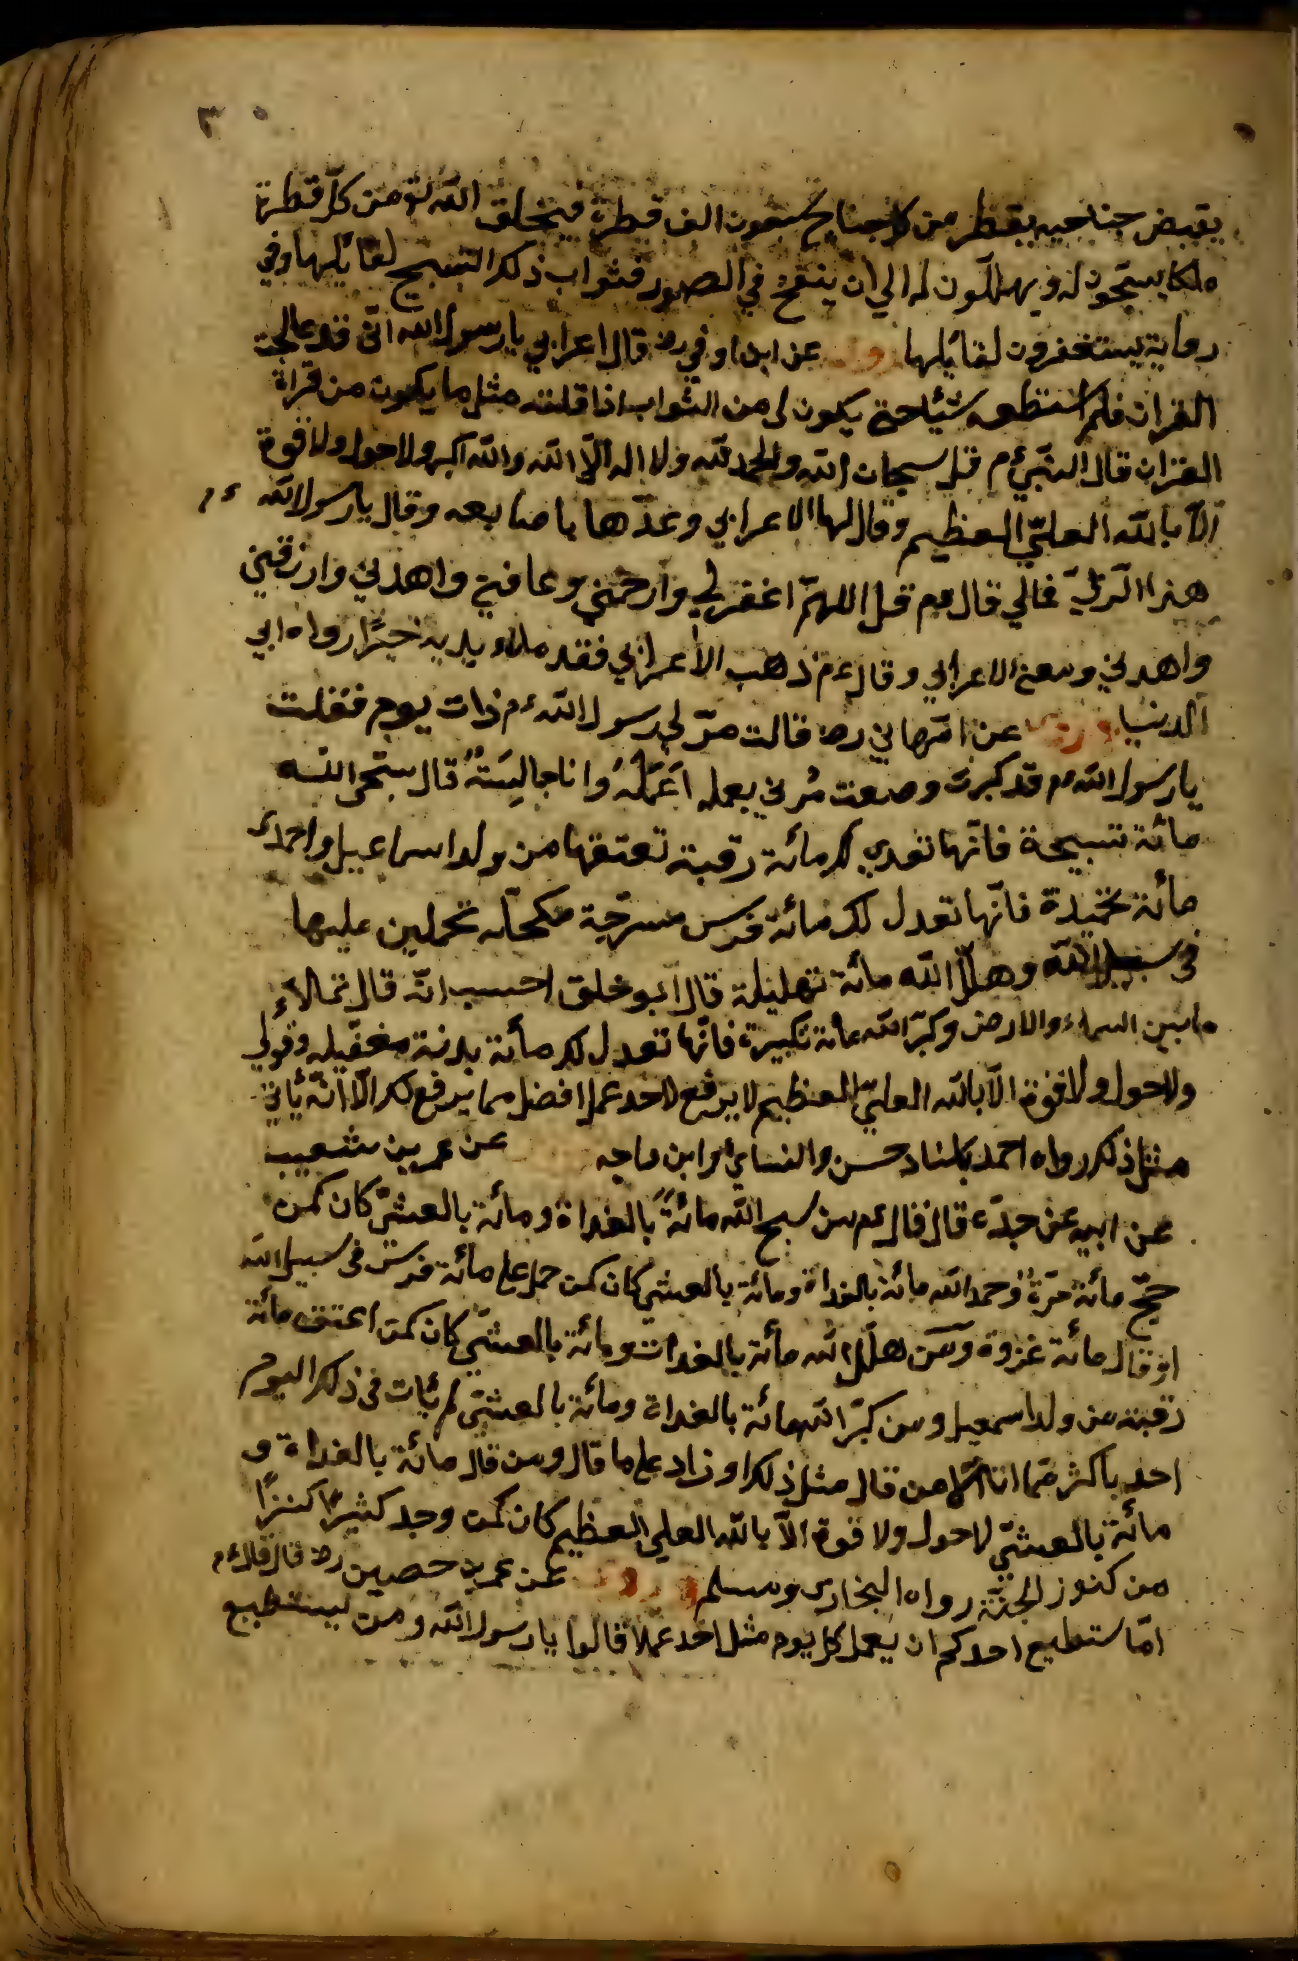 ٣٠
يقبض جناحيه يقطر من كل جناح سبعون الف قطرة فيخلق الله تع من كل قطرة
ملكا يسبحون له ويهللون له الى ان ينفخ في الصور فثواب ذلك التسبيح لقائلها وفي
رواية يستغفرون لقائلها عن ابن اوفى رض قال اعرابي يا رسول الله اني قد عالجت
القران فلم استطعه شيئا حتى يكون لي من الثواب اذا قلته مثل ما يكون من قراة
القران قال النبي ءم قل سبحان الله والحمد لله ولا اله الا الله والله اكبر ولا حول ولا قوة
الا بالله العلي العظيم وقال لها الاعرابي وعدها باصابعه وقال يا رسول الله ءم
هذا لربي فما لي قال ءم قل اللهم اغفر لي وارحمني وعافني واهدني وارزقني
واهدني ومعنى الاعرابي وقال ءم ذهب الاعرابي فقد ملاء يديه خيرا رواه ابي
الدنيا وروى عن ام هاني رض قالت مر لي رسول الله ءم ذات يوم فقلت
يا رسول الله ءم قد كبرت وضعفت مرني بعمل اعمله وانا جالسة قال سبحي الله
مائة تسبيحة فانها تعدل لك مائة رقبة تعتقها من ولد اسماعيل واحمدى
مائة تحميدة فانها تعدل لك مائة فرس مسرجة محكمة تحملين عليها
في سبيل الله وهللي الله مائة تهليلة قال ابو خلف احسب انه قال تملاء
ما بين السماء والارض وكبر الله مائة تكبيرة فانها تعدل لك مائة بدنة متقبلة وقولي
ولا حول ولا قوة الا بالله العلي العظيم لا يرفع لاحد عملا افضل مما يرفع لك الا انه ياتي
مثل ذلك رواه احمد باسناد حسن والنسائي وابن ماجه عن عمر بن شعيب
عن ابيه عن جده قال قال ءم من سبح الله مائة بالغداة ومائة بالعشي كان كمن
حج مائة مرة وحمد الله مائة بالغداة ومائة بالعشي كان كمن حمل على مائة فرس في سبيل الله
او قال مائة غزوة ومن هلل الله مائة بالغدات ومائة بالعشي كان كمن اعتق مائة
رقبة من ولد اسمعيل ومن كبر الله مائة بالغداة ومائة بالعشي لم يأت في ذلك اليوم
احد باكثر مما اتا الا من قال مثل ذلك او زاد على ما قال ومن قال مائة بالغداة و
مائة بالعشي لا حول ولا قوة الا بالله العلي العظيم كان كمن وجد كثيرا كنزا
من كنوز الجنة رواه البخارى ومسلم وروى عن عمر بن حصين رض قال قال ءم
اما ستطيع احدكم ان يعمل كل يوم مثل احد عملا قالوا يا رسول الله ومن يستطيع